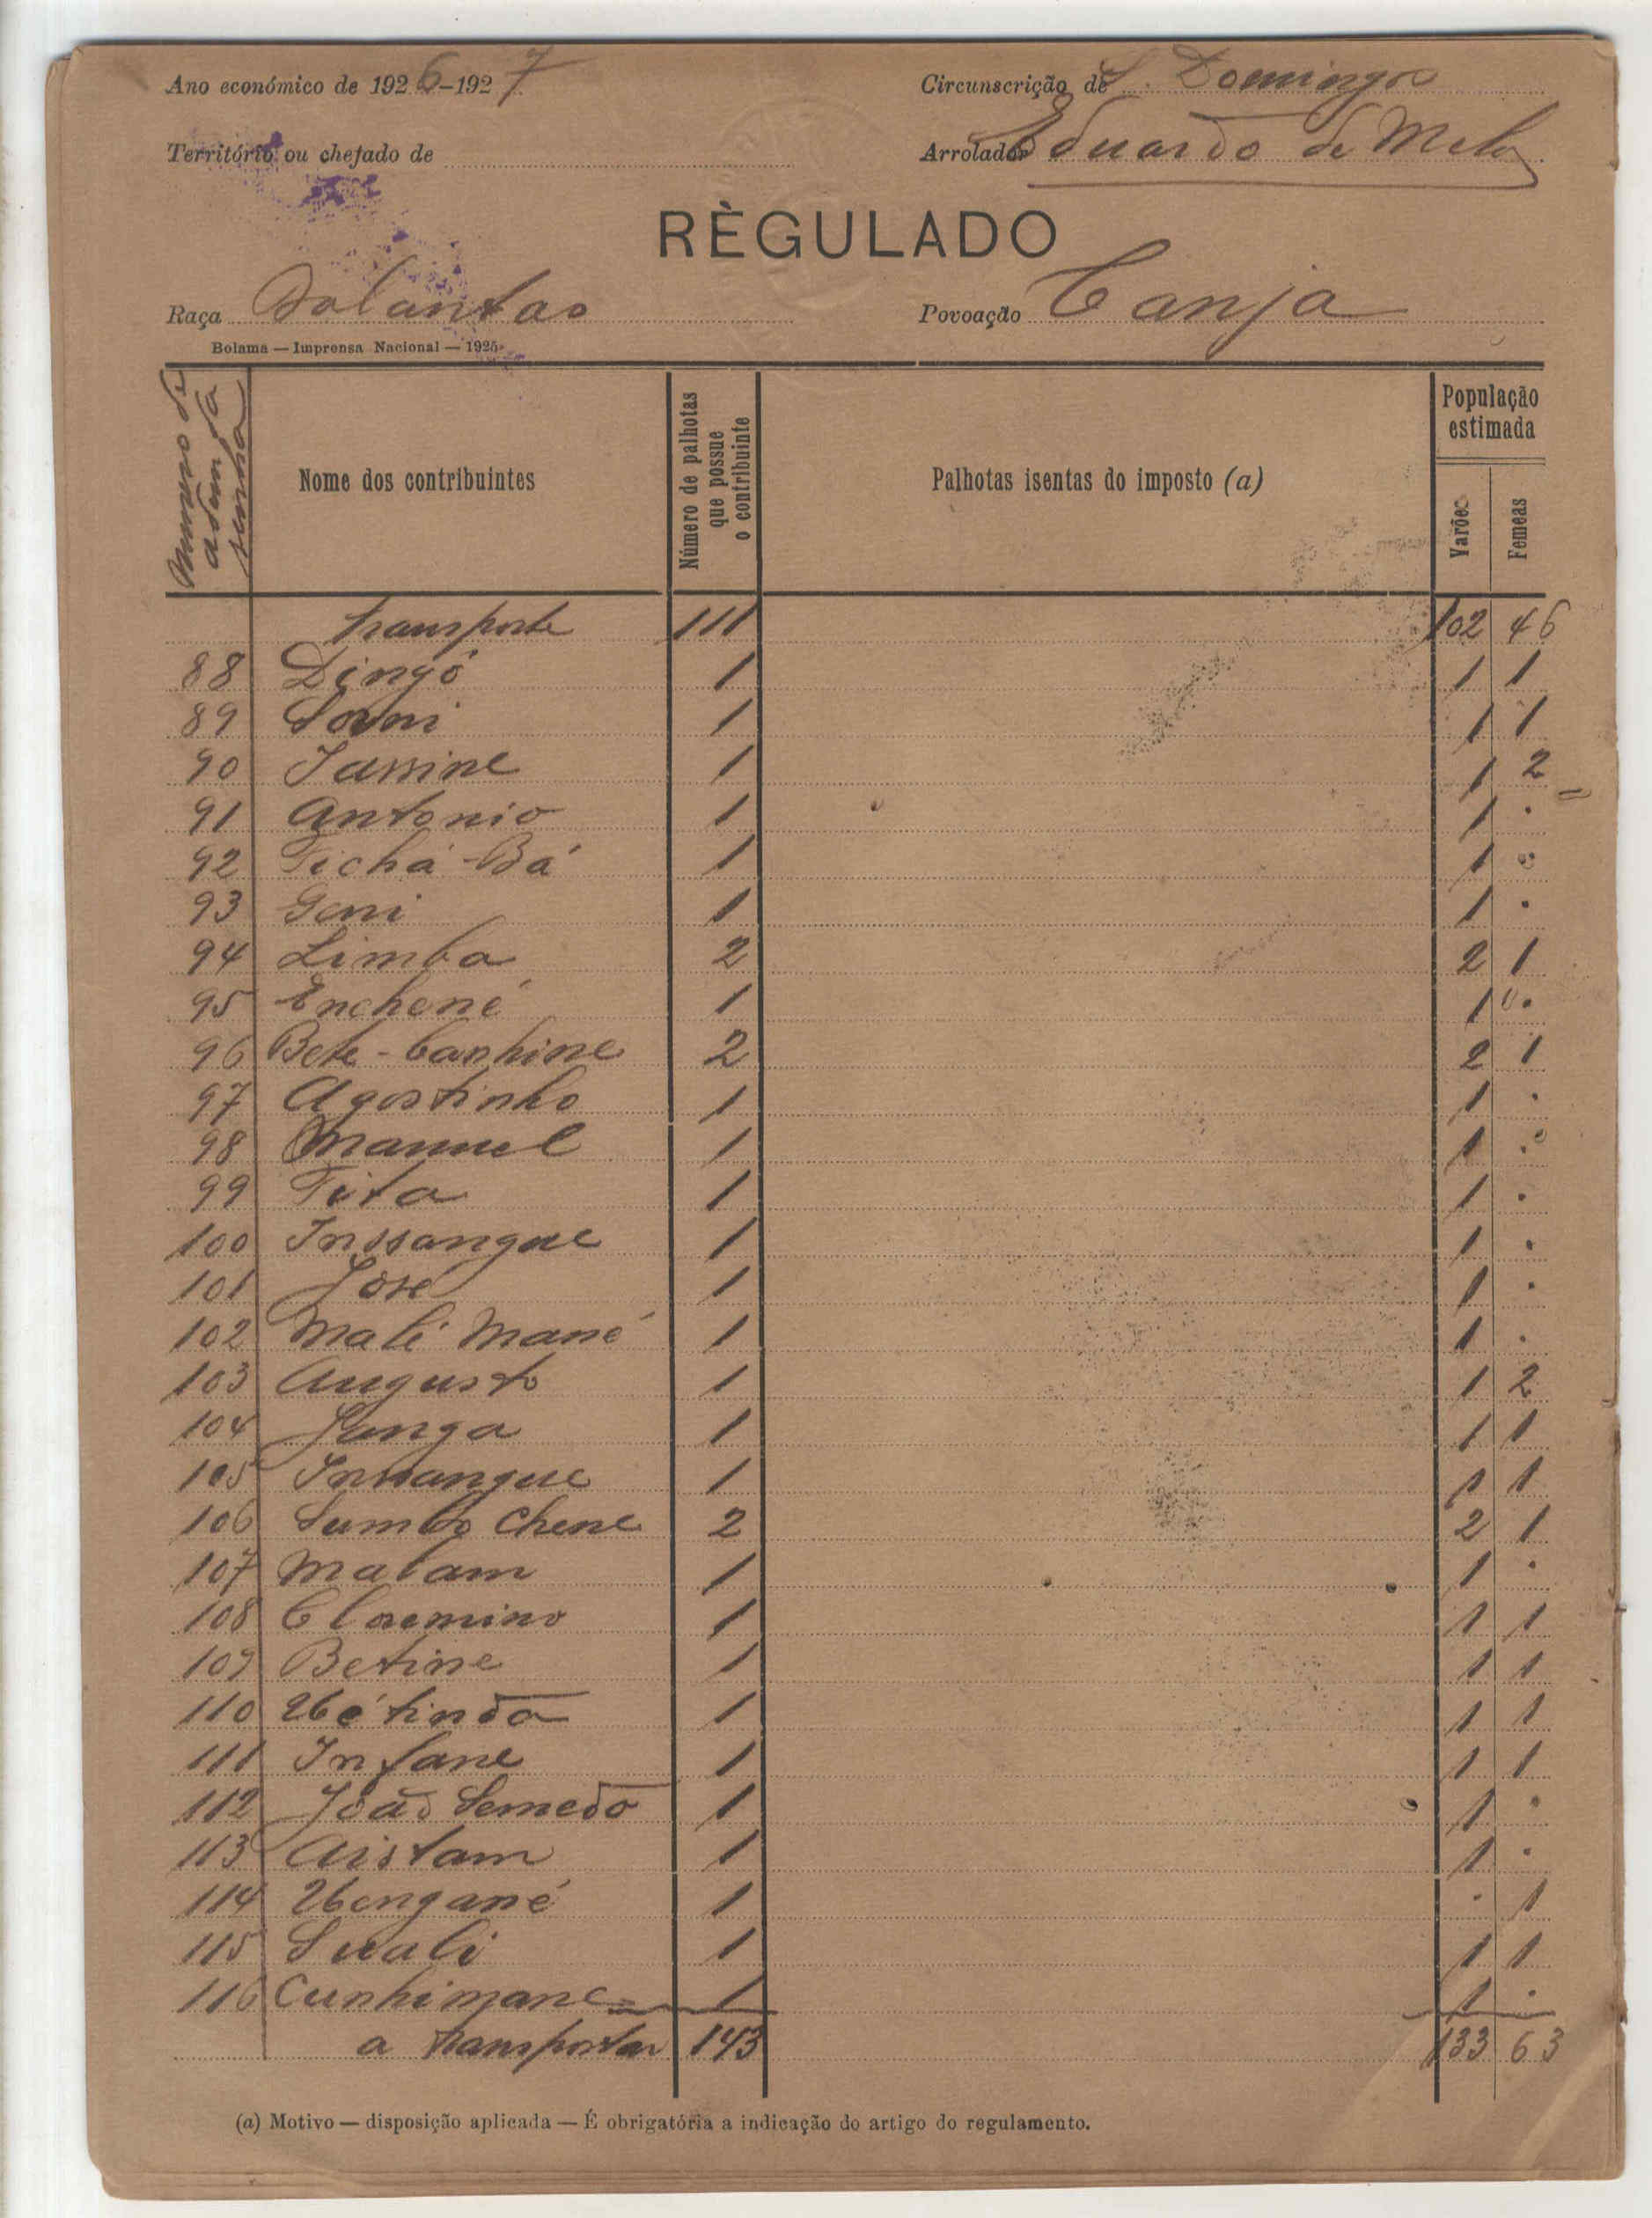 Ano económico de 1926-1927
Circunscrição de S. Domingos
Território ou chefado de
Arrolador Eduardo de Melo
RÈGULADO
Raça Balantas
Povoação Canja
Bolama — Imprensa Nacional — 1925
Numero de senha
Nome dos contribuintes
Número de palhotas que possue o contribuinte
Palhotas isentas do imposto (a)
População estimada
Varões
Femeas
Transporte 111 102 46
88 Dingô 1 1 1
89 1 1 1
90 1 1 2
91 Antonio 1 1 .
92 Tichá-Bá 1 1 .
93 Geni 1 1 .
94 Limba 2 2 1
95 Enchené 1 1 .
96 Bete-Canhine 2 2 1
97 Agostinho 1 1 .
98 Manuel 1 1 .
99 Tita 1 1 .
100 Inssangue 1 1 .
101 José 1 1 .
102 Mali Mané 1 1 .
103 Augusto 1 1 2
104 Sanga 1 1 1
105 Inssangue 1 1 1
106 Sumbo Chene 2 2 1
107 Malam 1 1 .
108 1 1 1
109 Betine 1 1 1
110 1 1 1
111 Infane 1 1 1
112 João Semedo 1 1 .
113 Aistam 1 1 .
114 1 . 1
115 Suali 1 1 1
116 Cunhimane 1 1 .
a transportar 143 133 63
(a) Motivo — disposição aplicada — É obrigatória a indicação do artigo do regulamento.